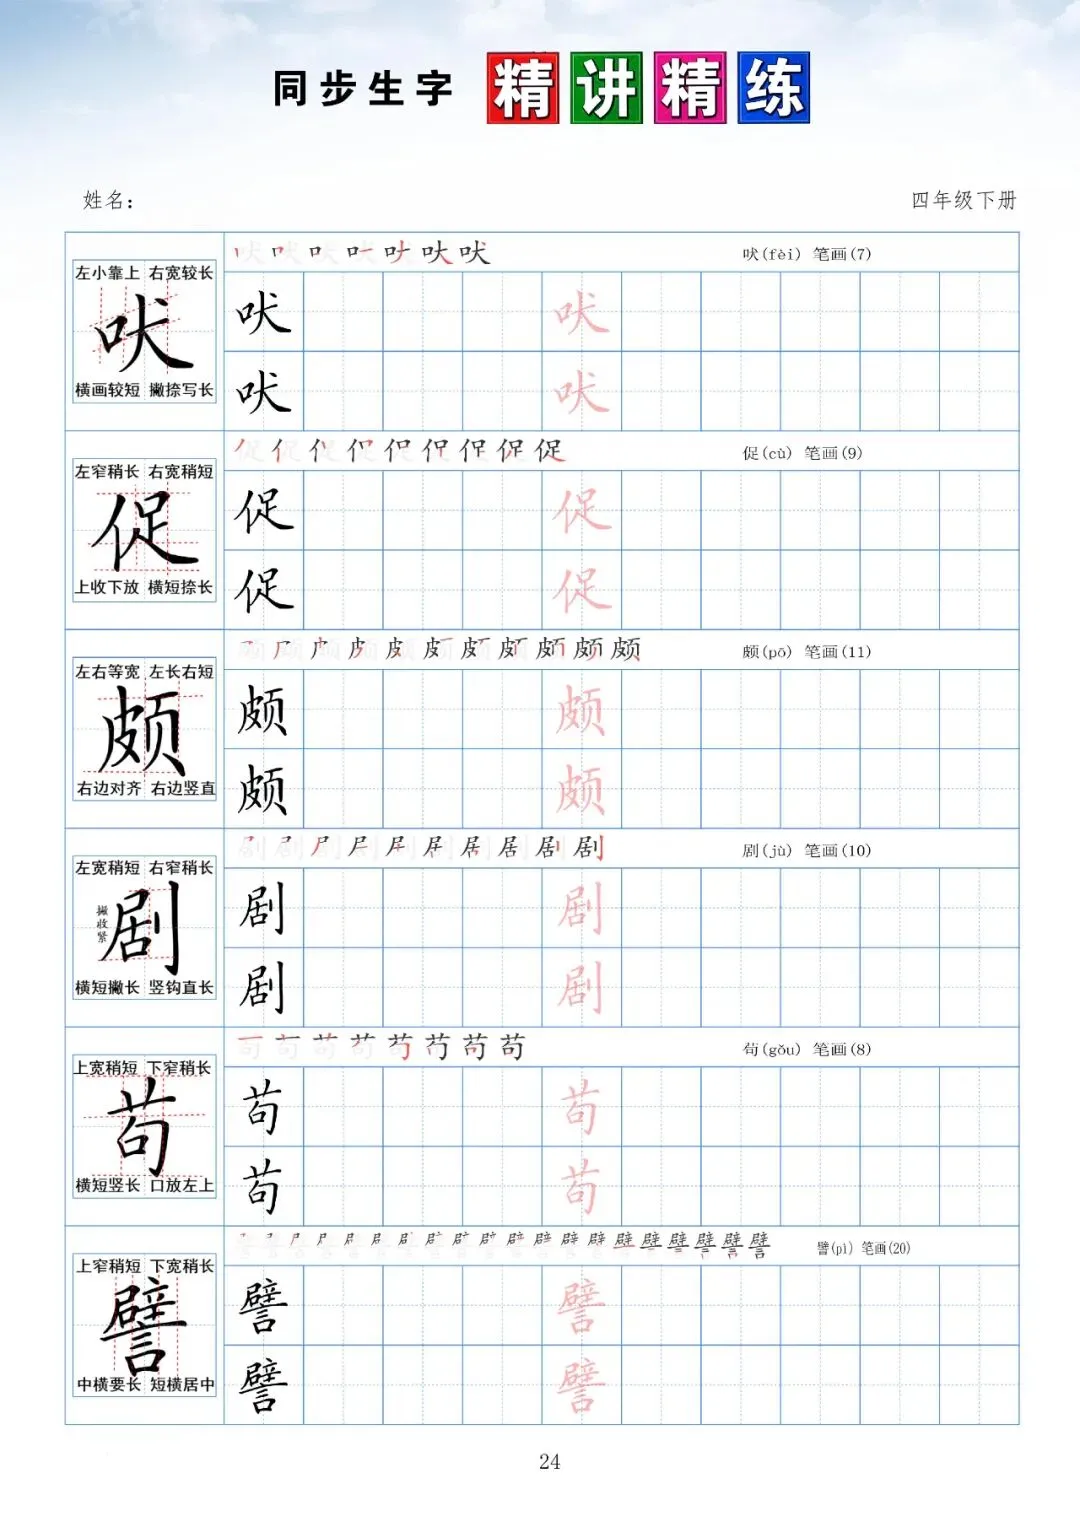 同步生字 精讲精练
姓名：
四年级下册
吠(fèi) 笔画(7)
左小靠上 右宽较长
吠
横画较短 撇捺写长
吠 吠
吠 吠
促(cù) 笔画(9)
左窄稍长 右宽稍短
促
上收下放 横短捺长
促 促
促 促
颇(pō) 笔画(11)
左右等宽 左长右短
颇
右边对齐 右边竖直
颇 颇
颇 颇
剧(jù) 笔画(10)
左宽稍短 右窄稍长
撇收紧
剧
横短撇长 竖钩直长
剧 剧
剧 剧
苟(gǒu) 笔画(8)
上宽稍短 下窄稍长
苟
横短竖长 口放左上
苟 苟
苟 苟
譬(pì) 笔画(20)
上窄稍短 下宽稍长
譬
中横要长 短横居中
譬 譬
譬 譬
24